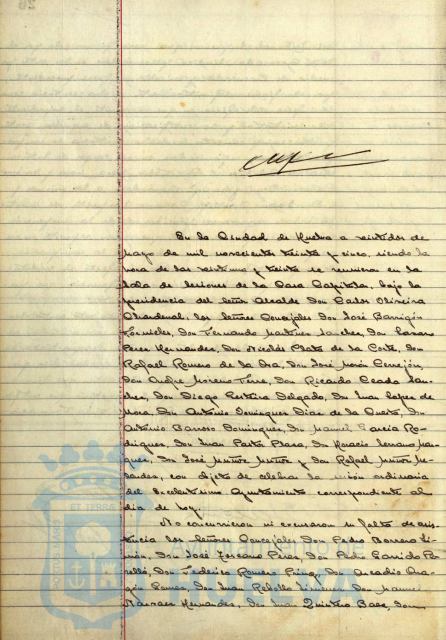 En la Ciudad de Huelva a veintidos de
mayo de mil novecientos treinta y cinco, siendo la
hora de las veintiuna y treinta se reunieron en la
Sala de sesiones de la Casa Capitular, bajo la
presidencia del señor Alcalde Don Carlos Oliveira
Chardenal, los señores Concejales Don José Barrigón
Fornieles, Don Fernando Martinez Sanchez, Don Lázaro
Perez Hernandez, Don Nicolás Prats de la Corte, Don
Rafael Romero de la Osa, Don José Morón Cerrejón,
Don André Moreno Don Ricardo San-
chez, Don Diego Delgado, Don Juan Lopez de
Mora, Don Antonio Dominguez Diaz de la Don
Antonio Barroso Dominguez, Don Manuel Garcia Ro-
driguez, Don Juan Pastor Plaza, Don Horacio Mar-
quez, Don José Muñoz Muñoz y Don Rafael Muñoz Me-
con objeto de celebrar la sesión ordinaria
del Excelentísimo Ayuntamiento correspondiente al
día de hoy.
No concurrieron ni excusaron su falta de asis-
tencia los señores Concejales Don Pedro Borrero Li-
món, Don José Toscano Perez, Don Pedro Garrido Pe-
relló, Don Federico Romero Don Arcadio Ara-
gón Gomez, Don Juan Rebollo Jimenez, Don Manuel
Narvaez Hernandez, Don Juan Quintero Baez, Don
ET TERRA